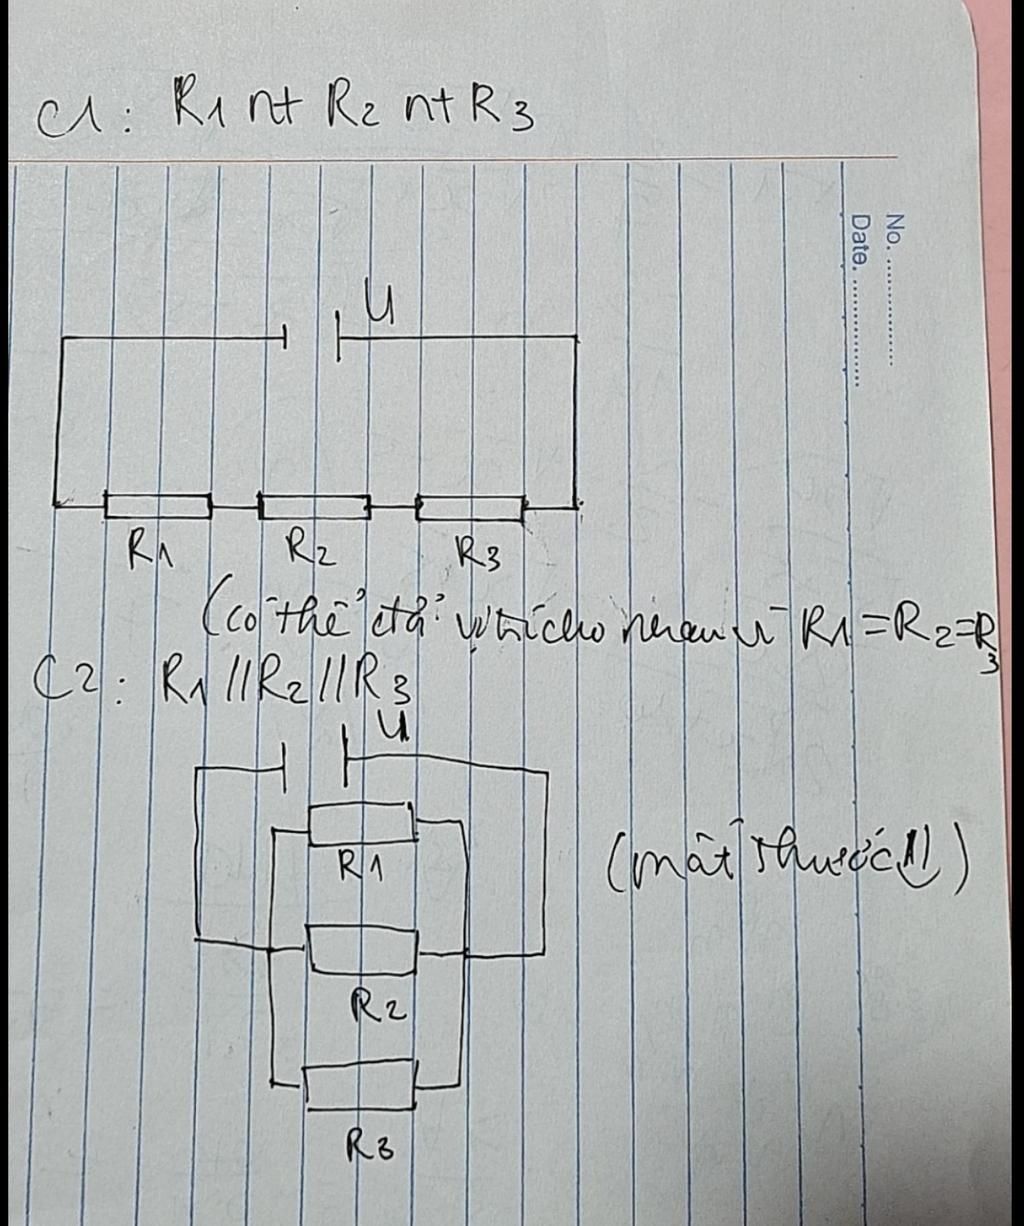 C1: R1 nt R2 nt R3
No. ................
Date. ................
U
R1 R2 R3
(có thể đổi vị trí cho nhau vì R1=R2=R3
C2: R1//R2//R3
U
R1
(mất thước)
R2
R3